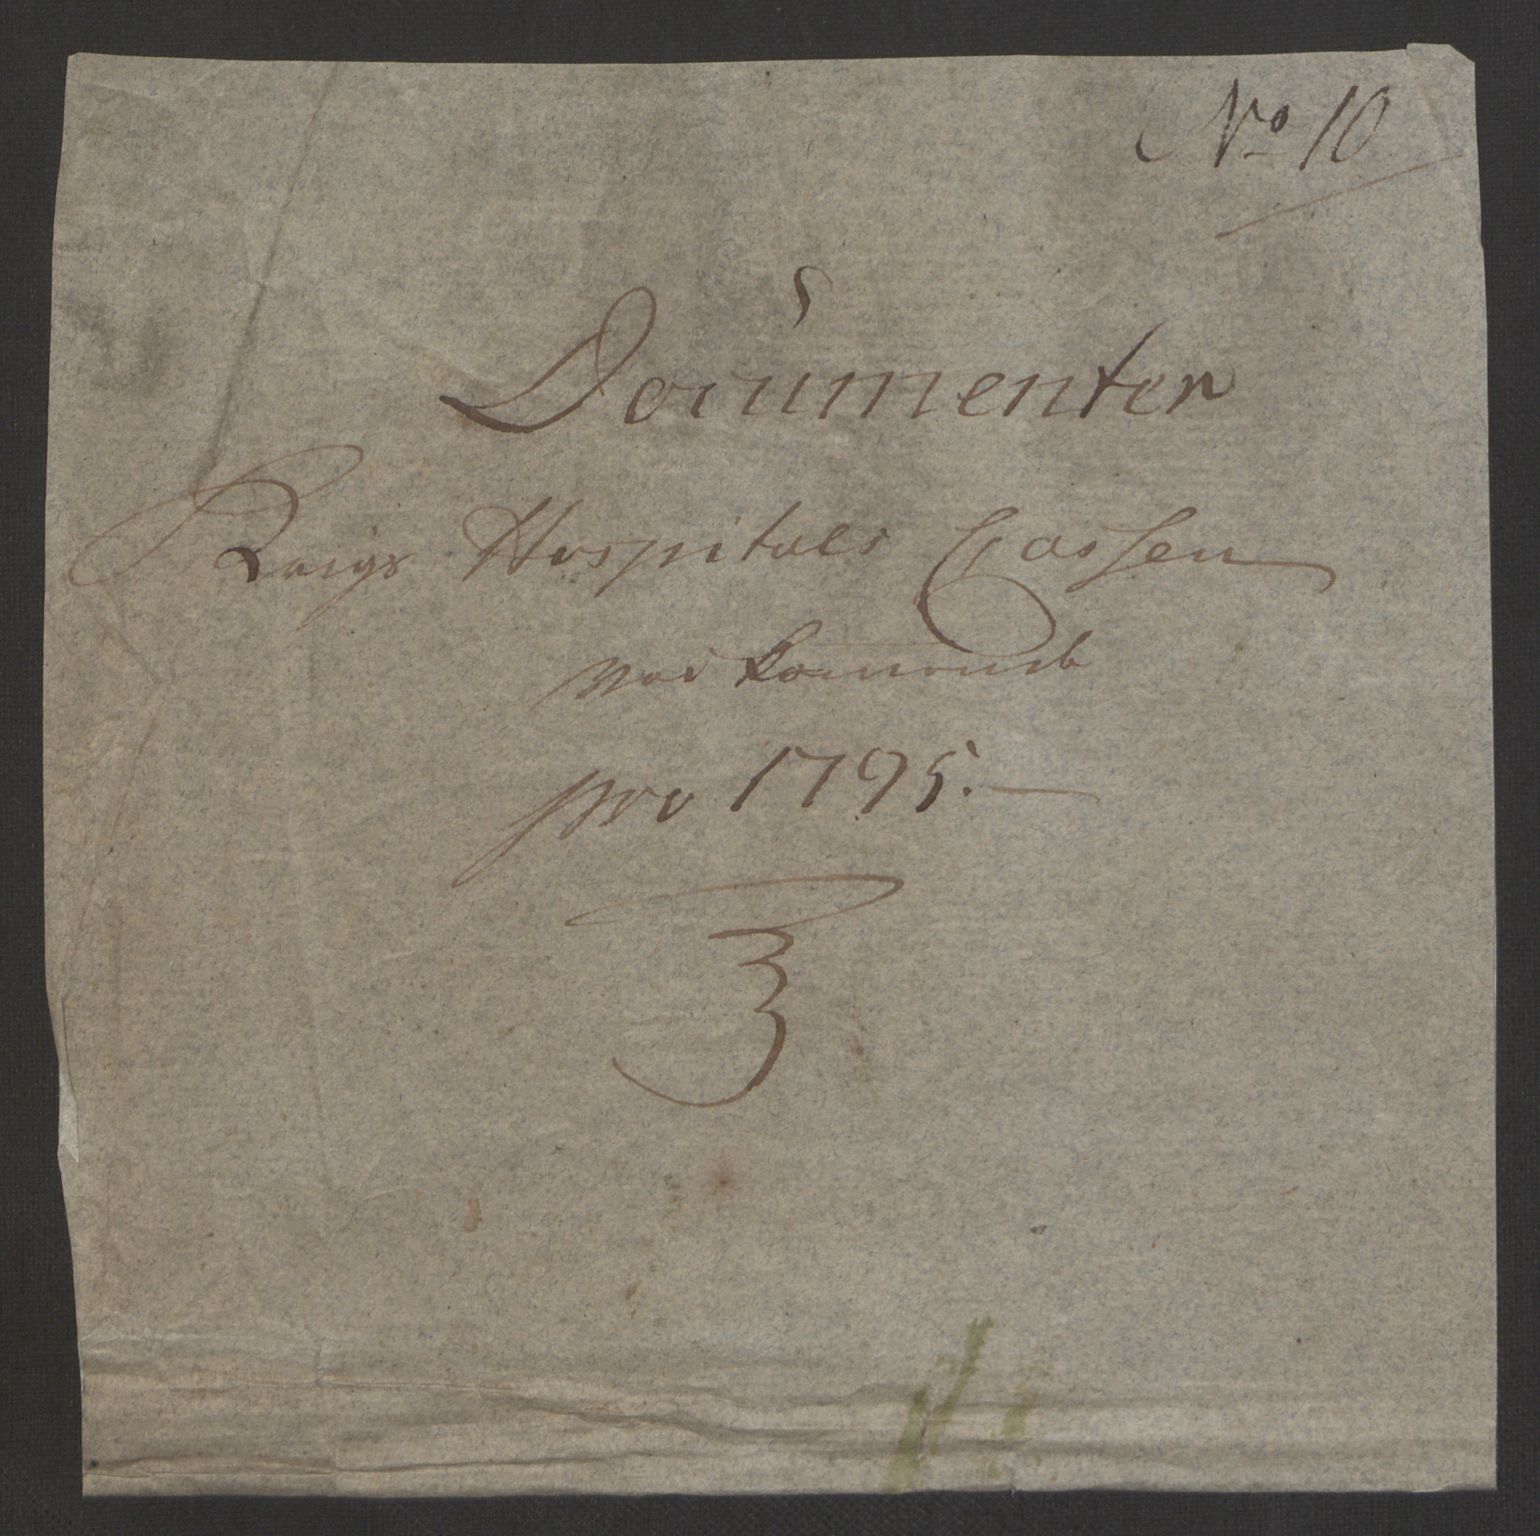 No 10
Documenter
Krigs Hospitals Cassen
vedkommende
pro 1795.